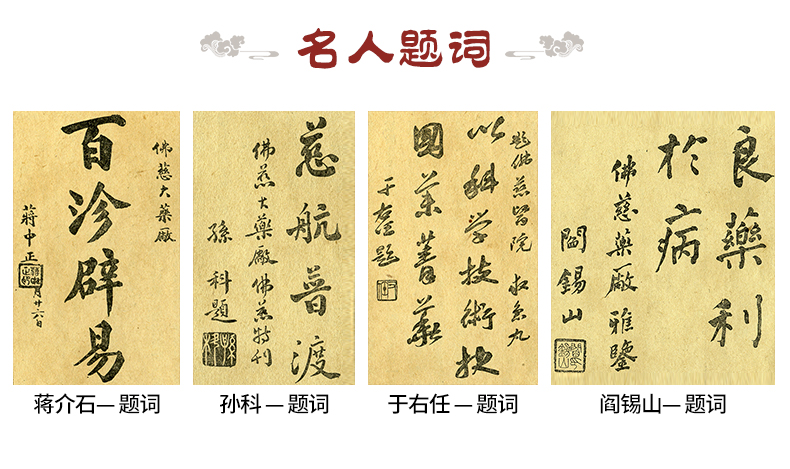 名人题词
佛慈大藥廠
百沴辟易
蔣中正
月廿六日
慈航普渡
佛慈大藥廠佛慈特刊
孫科題
題佛慈醫院
以科學技術
國菁華
于右任題
良藥利
於病
佛慈藥廠雅鑒
閻錫山
蒋介石— 题词
孙科 — 题词
于右任 — 题词
阎锡山— 题词